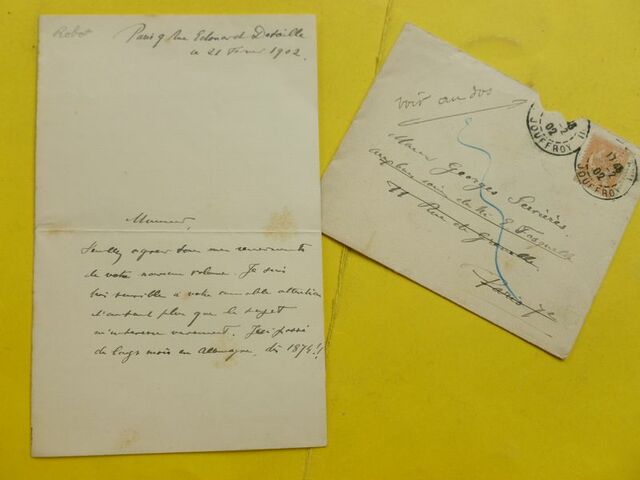 Robot
Paris 9 Rue Edouard Detaille
ce 21 Févr 1902
Monsieur,
Veuillez agréer tous mes remerciements
de votre nouveau volume. Je suis
très sensible à votre aimable attention
d'autant plus que le sujet
m'intéresse vivement. J'ai passé
de longs mois en Allemagne, dès 1874!!
voir au dos
Georges Servières
aux bons soins de M. E Fasquelle
11 Rue de Grenelle
Paris 7e
02
JOUFFROY
17
02
JOUFFROY